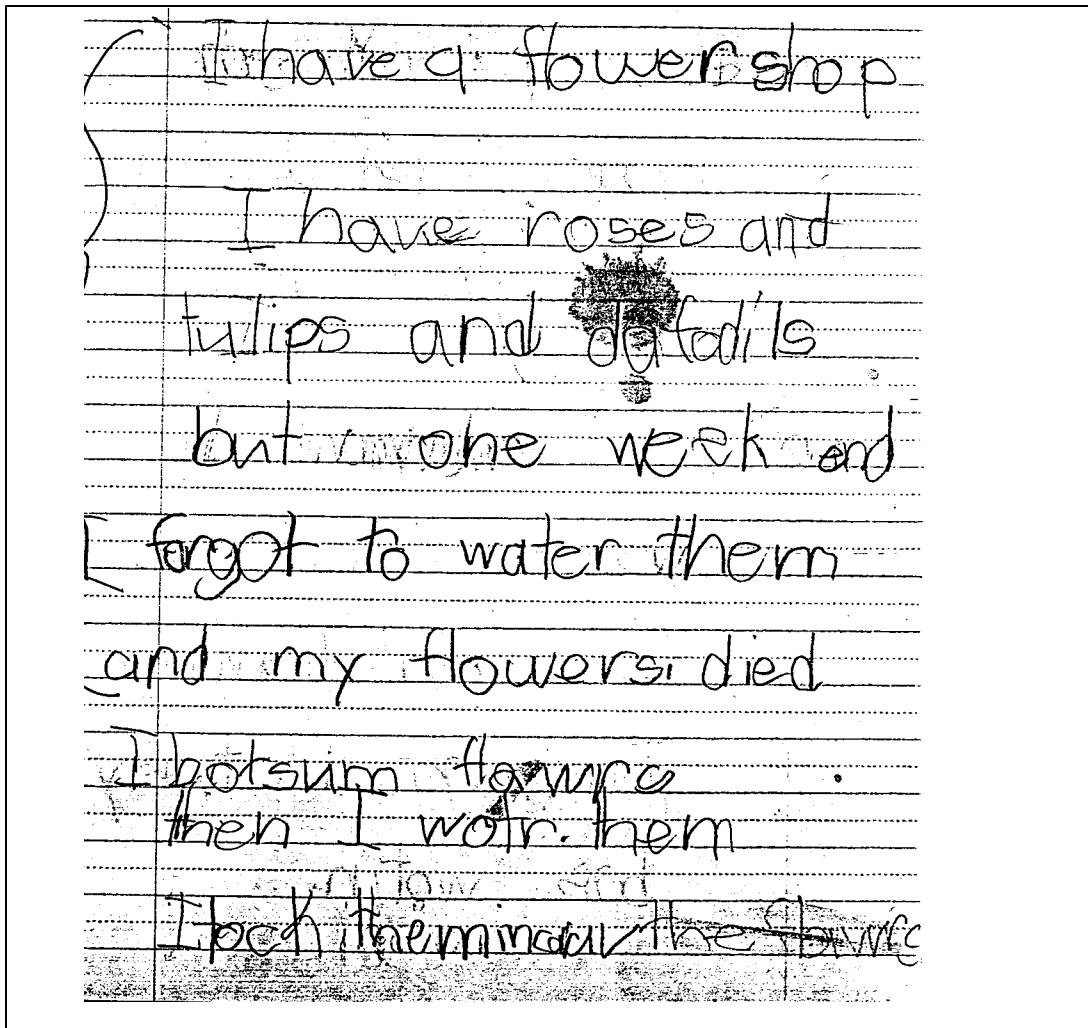 I have a flower shop
I have roses and
tulips and dafodils
but one week end
I forgot to water them
and my flowers. died
I bot sum flawrs
then I wotr. them
I tock them